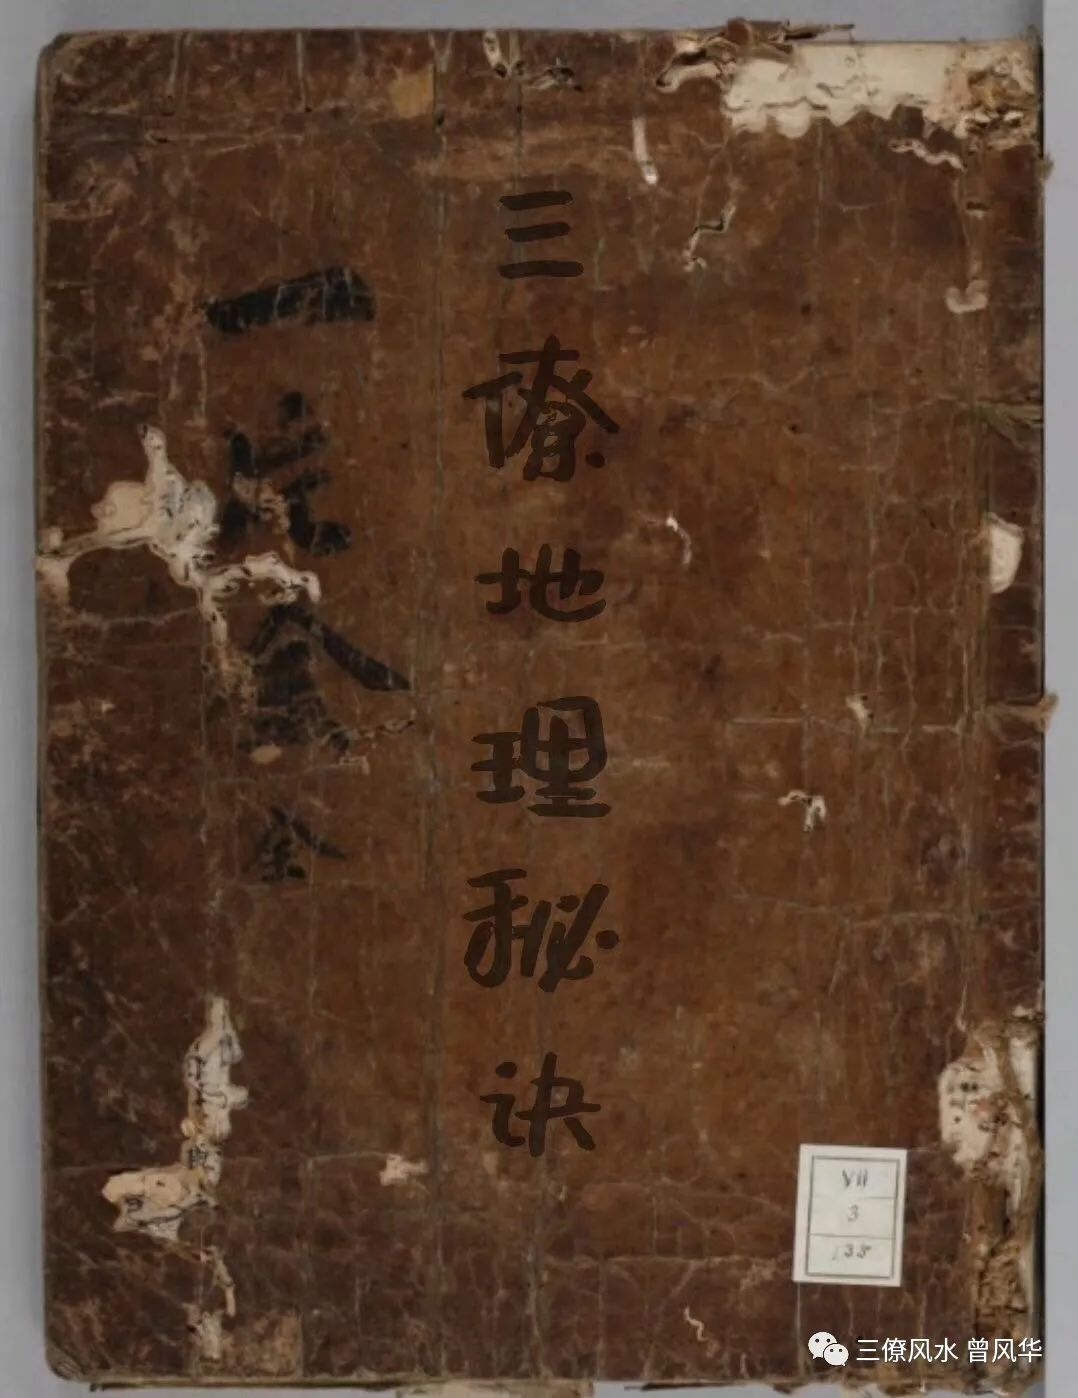 三僚地理秘诀
一片金 全
VII
3
138
三僚风水 曾风华